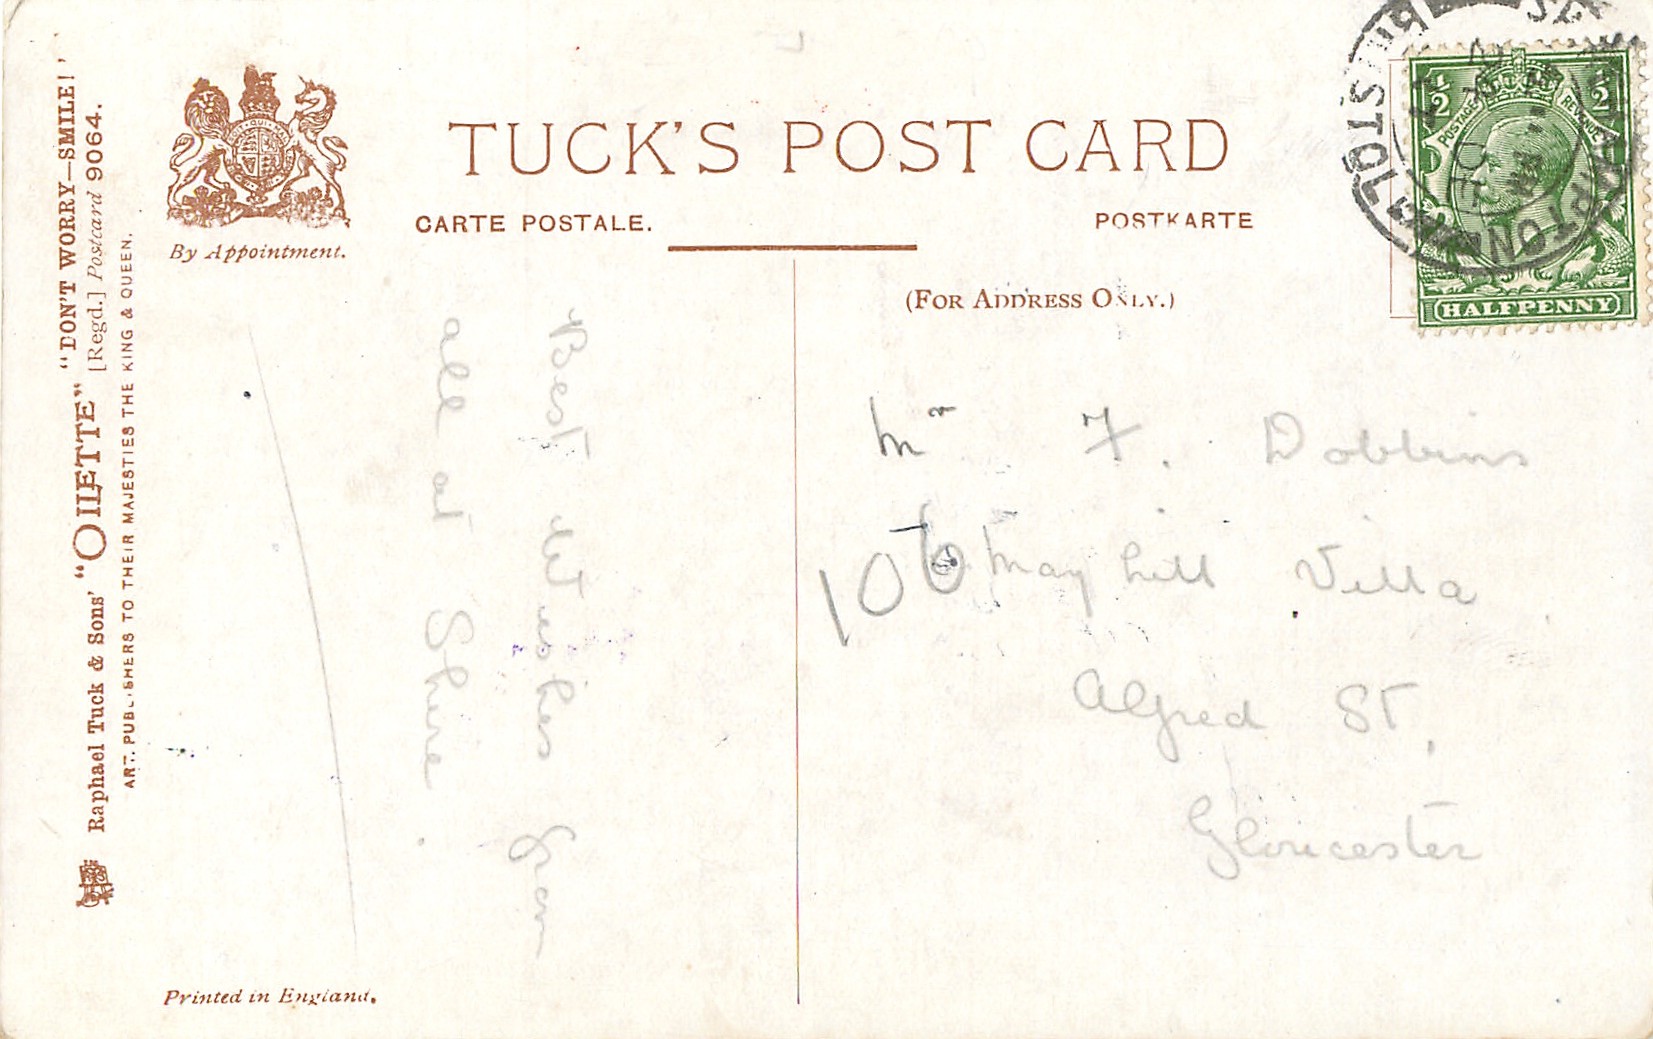 TUCK'S POST CARD
CARTE POSTALE.
POSTKARTE
(FOR ADDRESS ONLY.)
By Appointment.
Raphael Tuck & Sons' "OILETTE" "DON'T WORRY—SMILE!'
[Regd.] Postcard 9064.
ART PUBLISHERS TO THEIR MAJESTIES THE KING & QUEEN.
Printed in England.
POSTAGE REVENUE
HALFPENNY
BRISTOL
Best Wishes from
all at Shire.
Mr F. Dobbins
106 May hill Villa
Alfred St,
Gloucester